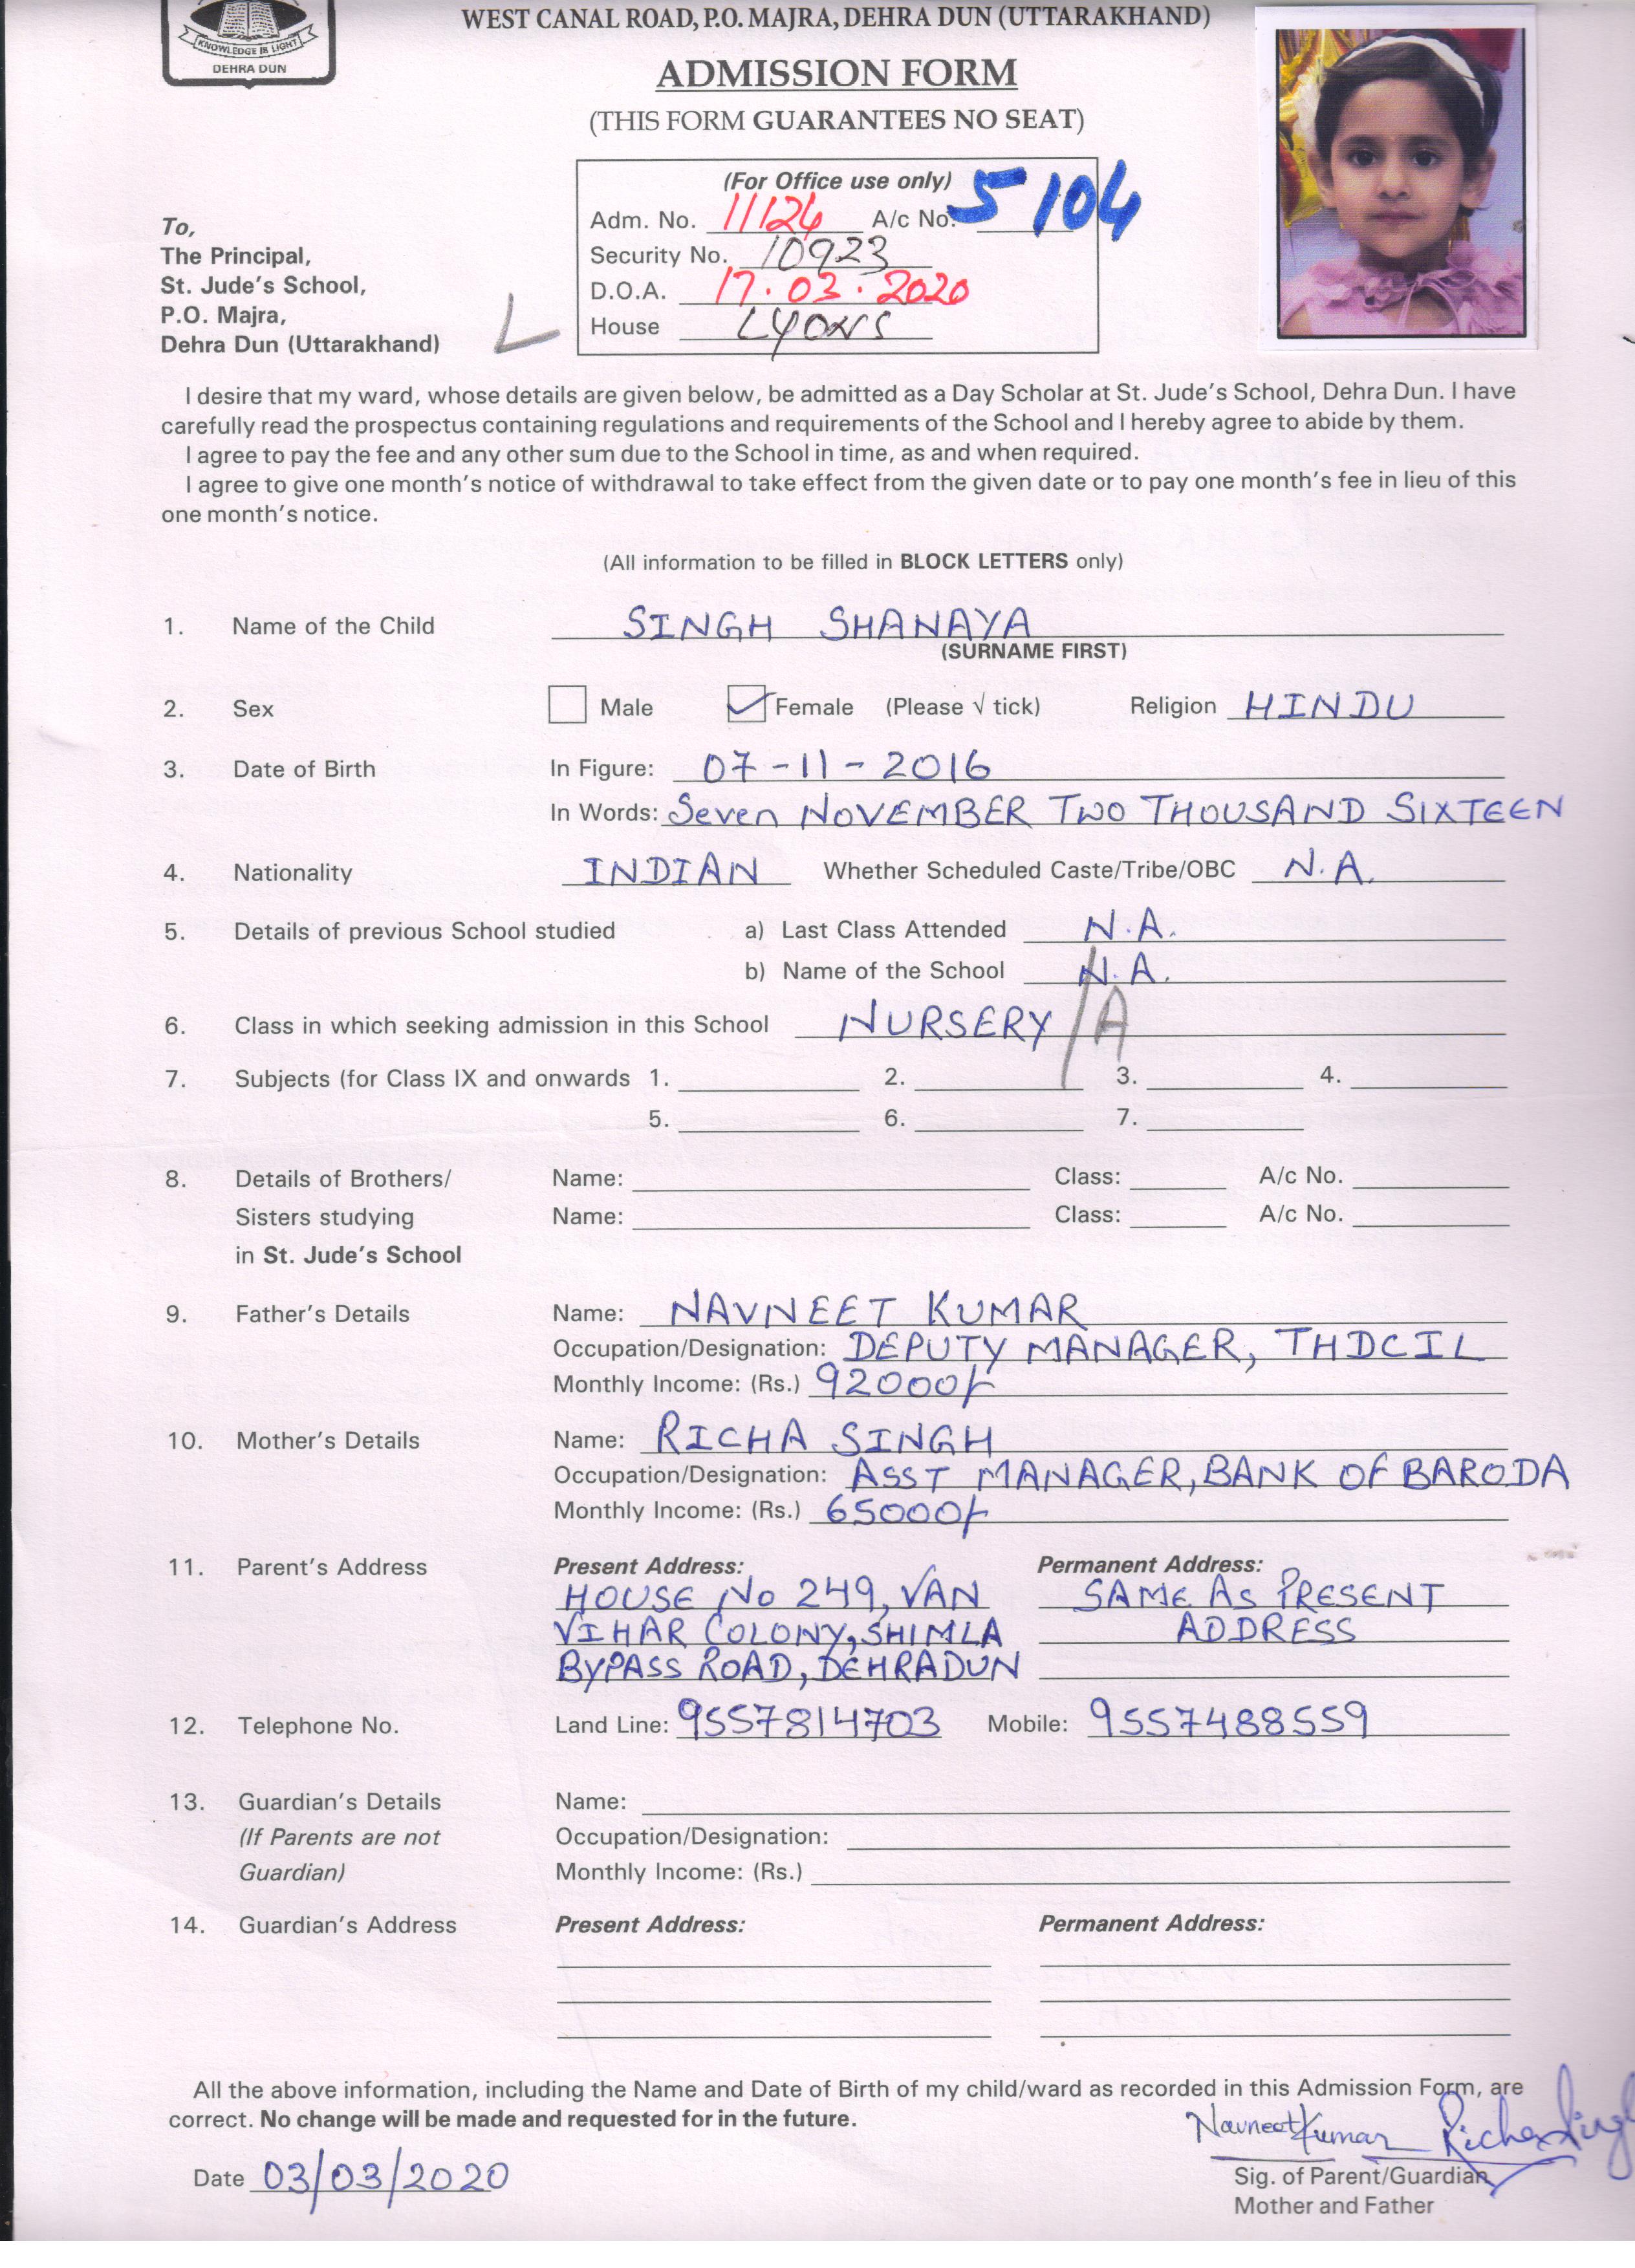 KNOWLEDGE IS LIGHT
DEHRA DUN
WEST CANAL ROAD, P.O. MAJRA, DEHRA DUN (UTTARAKHAND)
ADMISSION FORM
(THIS FORM GUARANTEES NO SEAT)
(For Office use only)
Adm. No. 11124 A/c No. 5104
Security No. 10923
D.O.A. 17.03.2020
House LYONS
To,
The Principal,
St. Jude's School,
P.O. Majra,
Dehra Dun (Uttarakhand)
L
I desire that my ward, whose details are given below, be admitted as a Day Scholar at St. Jude's School, Dehra Dun. I have
carefully read the prospectus containing regulations and requirements of the School and I hereby agree to abide by them.
I agree to pay the fee and any other sum due to the School in time, as and when required.
I agree to give one month's notice of withdrawal to take effect from the given date or to pay one month's fee in lieu of this
one month's notice.
(All information to be filled in BLOCK LETTERS only)
1. Name of the Child SINGH SHANAYA
(SURNAME FIRST)
2. Sex Male Female (Please √ tick) Religion HINDU
3. Date of Birth In Figure: 07-11-2016
In Words: Seven NOVEMBER TWO THOUSAND SIXTEEN
4. Nationality INDIAN Whether Scheduled Caste/Tribe/OBC N.A.
5. Details of previous School studied a) Last Class Attended N.A.
b) Name of the School N.A.
6. Class in which seeking admission in this School NURSERY /A
7. Subjects (for Class IX and onwards 1. 2. 3. 4.
5. 6. 7.
8. Details of Brothers/ Name: Class: A/c No.
Sisters studying Name: Class: A/c No.
in St. Jude's School
9. Father's Details Name: NAVNEET KUMAR
Occupation/Designation: DEPUTY MANAGER, THDCIL
Monthly Income: (Rs.) 92000/-
10. Mother's Details Name: RICHA SINGH
Occupation/Designation: ASST MANAGER, BANK OF BARODA
Monthly Income: (Rs.) 65000/-
11. Parent's Address Present Address: Permanent Address:
HOUSE No 249, VAN SAME AS PRESENT
VIHAR COLONY, SHIMLA ADDRESS
BYPASS ROAD, DEHRADUN
12. Telephone No. Land Line: 9557814703 Mobile: 9557488559
13. Guardian's Details Name:
(If Parents are not Occupation/Designation:
Guardian) Monthly Income: (Rs.)
14. Guardian's Address Present Address: Permanent Address:
All the above information, including the Name and Date of Birth of my child/ward as recorded in this Admission Form, are
correct. No change will be made and requested for in the future.
Navneet Kumar Richa Singh
Date 03/03/2020 Sig. of Parent/Guardian
Mother and Father